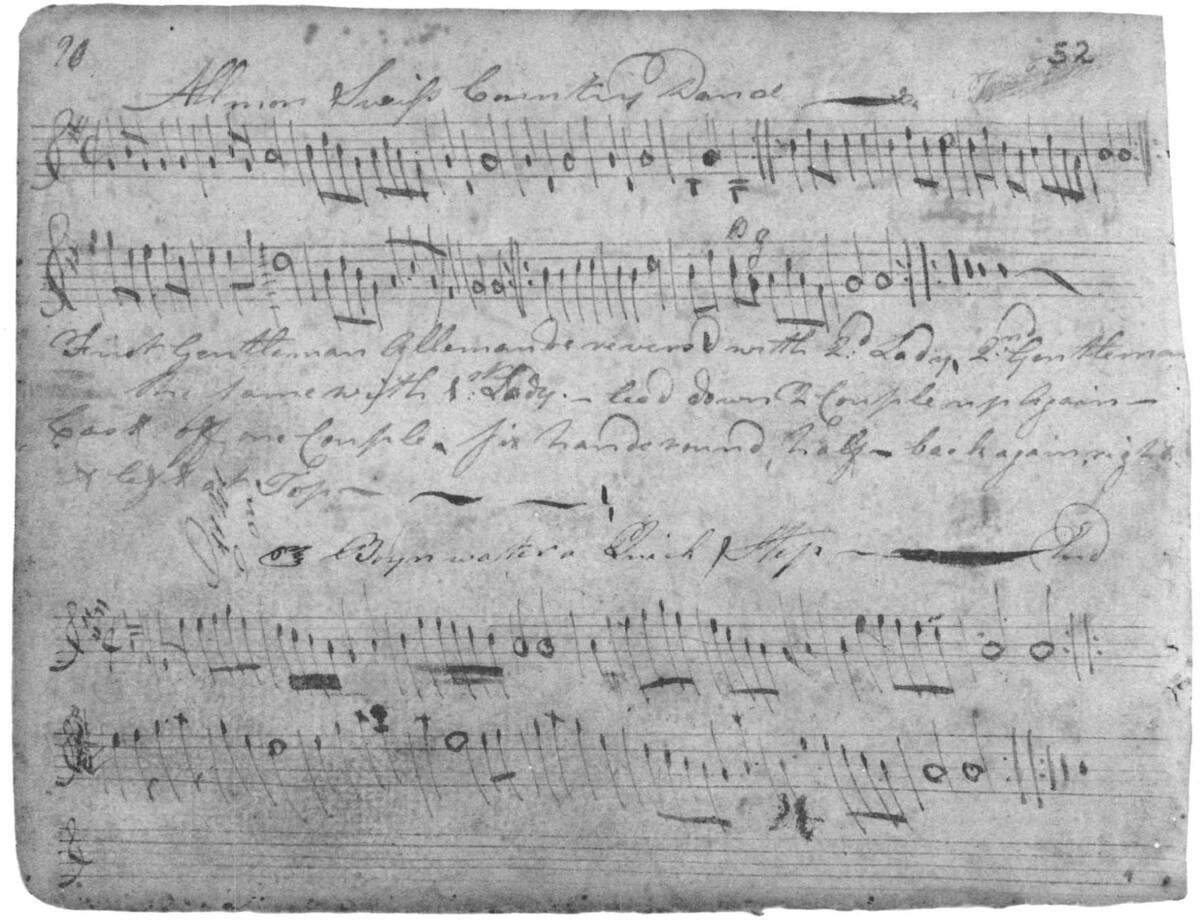 52
Allmon Swiss Country Dance
D g
First Gentleman Allemande revers'd with 2d Lady, 2nd Gentleman
the same with 1st Lady - led down 2 Couple up Again -
Cast off one Couple six hands round, half back again, right
& left at Top
Quick Step